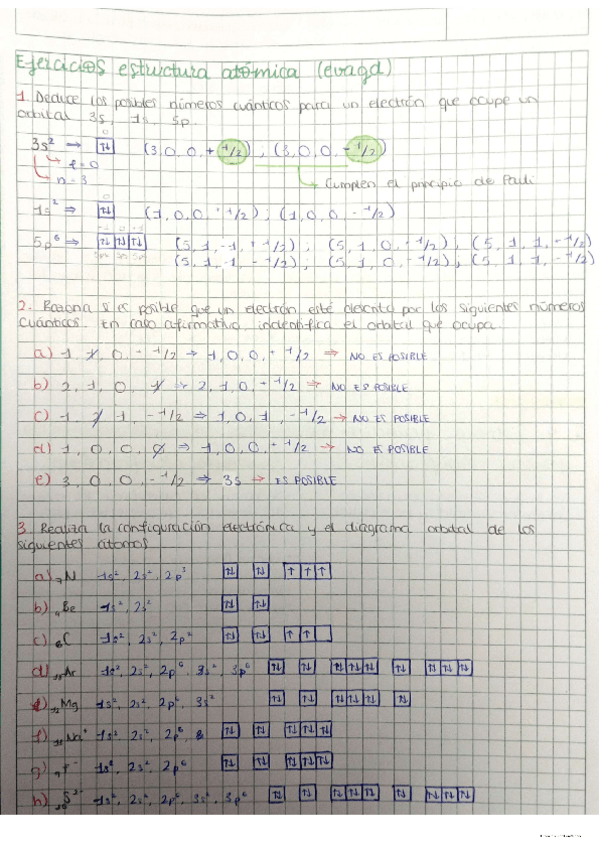 Ejercicios estructura atómica (evagd)
1. Deduce los posibles números cuánticos para un electrón que ocupe un
orbital 3s, 1s, 5p.
3s² → ↑↓ (3,0,0,+1/2), (3,0,0,-1/2)
l=0
n=3
Cumplen el principio de Pauli
1s² ⇒ ↑↓ (1,0,0,+1/2); (1,0,0,-1/2)
5p⁶ ⇒ ↑↓ ↑↓ ↑↓ (5,1,-1,+1/2); (5,1,0,+1/2), (5,1,1,-1/2)
(5,1,-1,-1/2), (5,1,0,-1/2), (5,1,1,-1/2)
2. Razona si es posible que un electrón esté descrito por los siguientes números
cuánticos. En caso afirmativo, indentifica el orbital que ocupa.
a) 1, 1, 0, +1/2 → 1,0,0,+1/2 ⇒ NO ES POSIBLE
b) 2, 1, 0, 1 → 2,1,0,+1/2 ⇒ NO ES POSIBLE
c) 1, 1, -1/2 ⇒ 1,0,1,-1/2 → NO ES POSIBLE
d) 1, 0, 0, 0 ⇒ 1,0,0,+1/2 → NO ES POSIBLE
e) 3, 0, 0, -1/2 ⇒ 3s → ES POSIBLE
3. Realiza la configuración electrónica y el diagrama orbital de los
siguientes átomos
a) ₇N 1s², 2s², 2p³ ↑↓ ↑↓ ↑ ↑ ↑
b) ₄Be 1s², 2s² ↑↓ ↑↓
c) ₆C 1s², 2s², 2p² ↑↓ ↑↓ ↑ ↑
d) ₁₈Ar 1s², 2s², 2p⁶, 3s², 3p⁶ ↑↓ ↑↓ ↑↓ ↑↓ ↑↓ ↑↓ ↑↓ ↑↓ ↑↓
e) ₁₂Mg 1s², 2s², 2p⁶, 3s² ↑↓ ↑↓ ↑↓ ↑↓ ↑↓ ↑↓
f) ₁₁Na⁺ 1s², 2s², 2p⁶ ↑↓ ↑↓ ↑↓ ↑↓ ↑↓
g) ₉F⁻ 1s², 2s², 2p⁶ ↑↓ ↑↓ ↑↓ ↑↓ ↑↓
h) ₁₆S²⁻ 1s², 2s², 2p⁶, 3s², 3p⁶ ↑↓ ↑↓ ↑↓ ↑↓ ↑↓ ↑↓ ↑↓ ↑↓ ↑↓